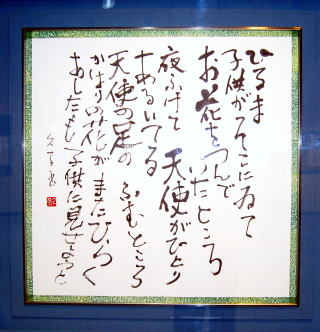 ひるま
子供がそこにゐて
お花をつんで
いたところ
夜ふけて
天使がひとり
あるいてる
天使の足の
ふむところ
かはりの花が
またひらく
あしたも子供に見せようと